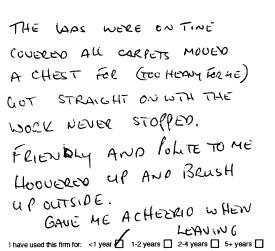 THE LADS WERE ON TIME
COVERED ALL CARPETS MOVED
A CHEST FOR (TOO HEAVY FOR ME)
GOT STRAIGHT ON WITH THE
WORK NEVER STOPPED.
FRIENDLY AND POLITE TO ME
HOOVERED UP AND BRUSH
UP OUTSIDE.
GAVE ME A CHEERIO WHEN
LEAVING
I have used this firm for: <1 year ☑ 1-2 years ☐ 2-4 years ☐ 5+ years ☐